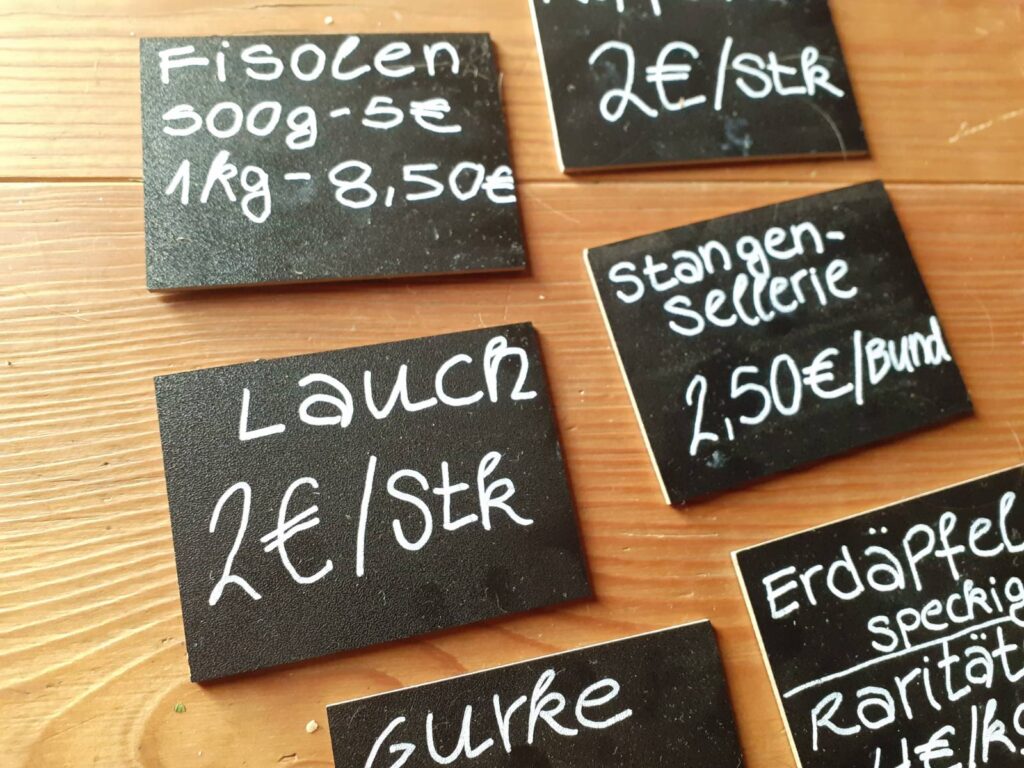 Fisolen
500g - 5€
1kg - 8,50€
2€/Stk
Stangen-
sellerie
2,50€/Bund
Lauch
2€/Stk
Erdäpfel
speckig
Rarität
4€/kg
Gurke